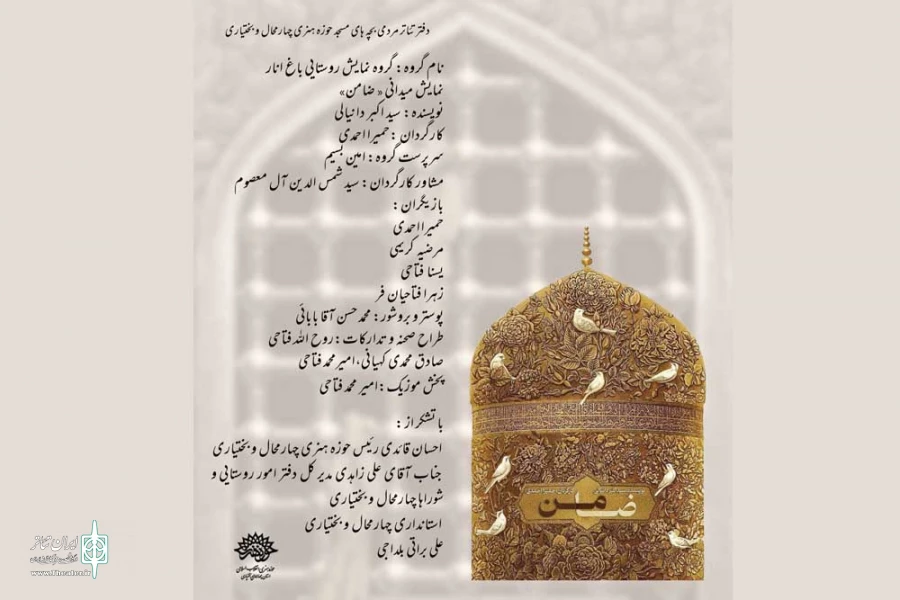 دفتر تئاتر مردمی بچه های مسجد حوزه هنری چهارمحال و بختیاری
نام گروه : گروه نمایش روستایی باغ انار
نمایش میدانی « ضامن»
نویسنده : سید اکبر دانیالی
کارگردان : حمیرا احمدی
سرپرست گروه : امین بسیم
مشاور کارگردان : سید شمس الدین آل معصوم
بازیگران :
حمیرا احمدی
مرضیه کریمی
یسنا فتاحی
زهرا فتاحیان فر
پوستر و بروشور : محمد حسن آقا بابائی
طراح صحنه و تدارکات : روح الله فتاحی
صادق محمدی کهیانی ، امیر محمد فتاحی
پخش موزیک : امیر محمد فتاحی
با تشکر از :
احسان قائدی رئیس حوزه هنری چهارمحال و بختیاری
جناب آقای علی زاهدی مدیر کل دفتر امور روستایی و
شوراها چهارمحال و بختیاری
استانداری چهارمحال و بختیاری
علی براتی بلداجی
ضامن
حوزه هنری انقلاب اسلامی
ایران تئاتر
www.Theater.ir